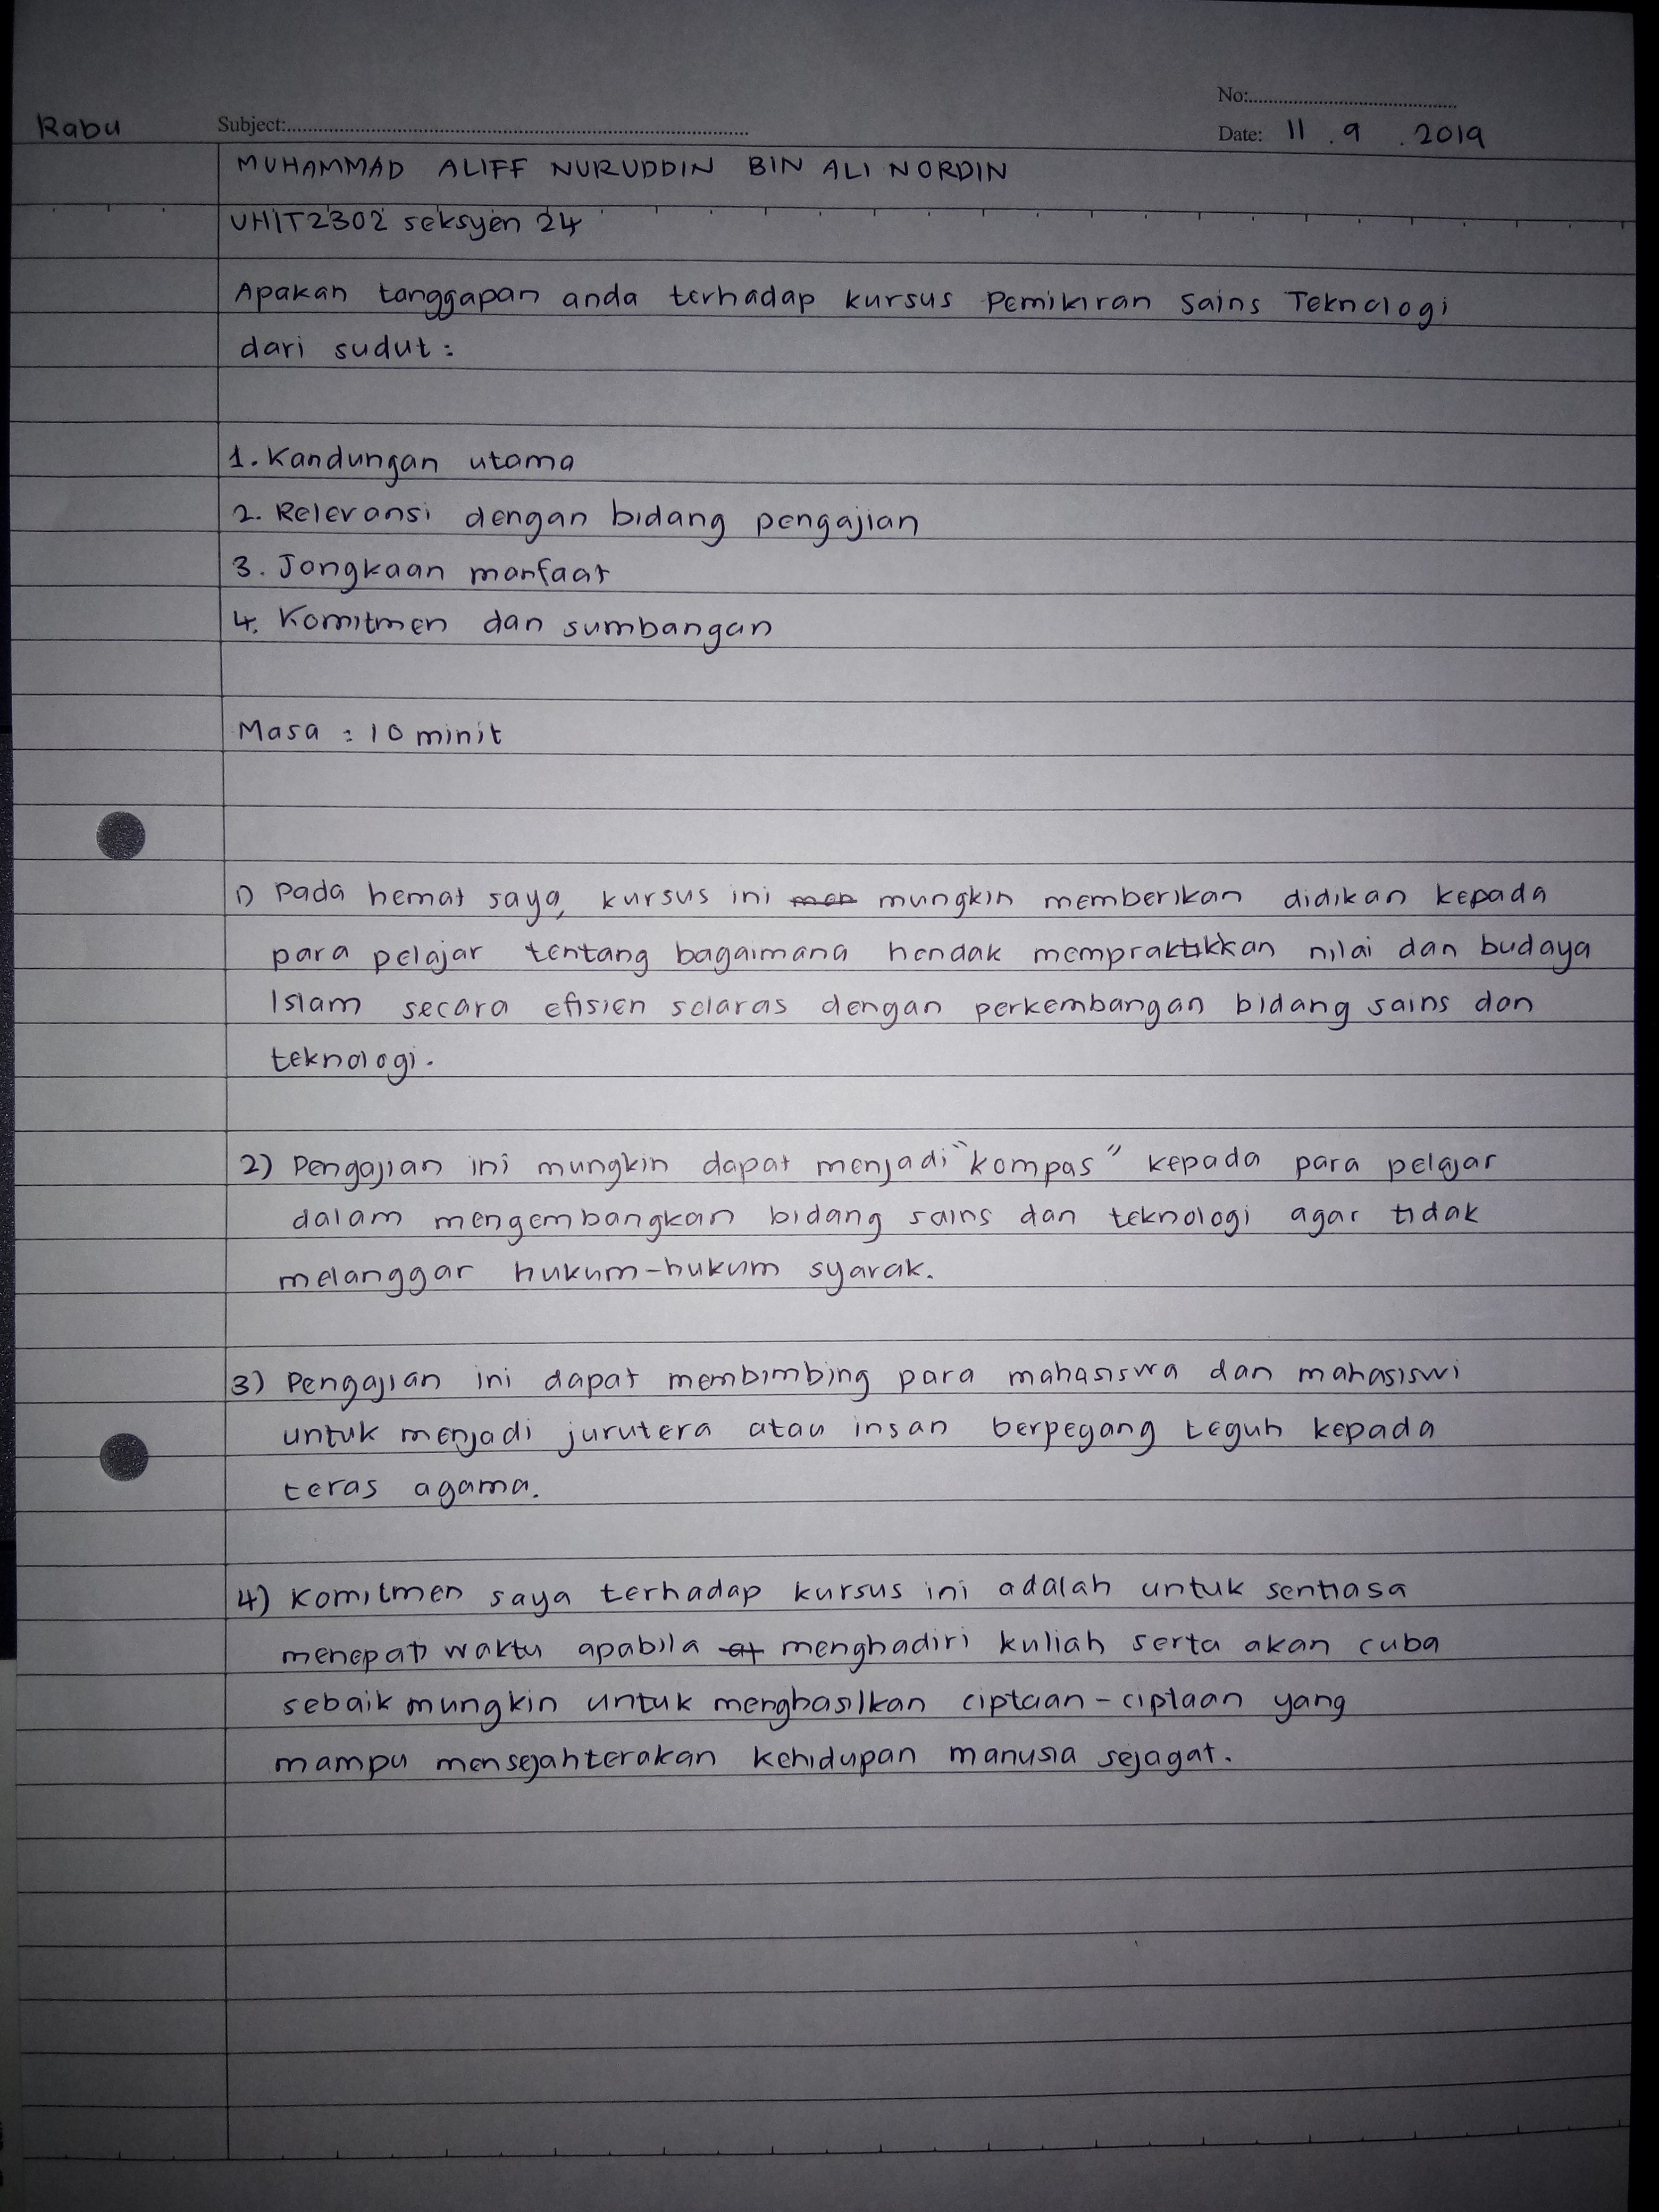 No:
Rabu Subject: Date: 11 . 9 . 2019
MUHAMMAD ALIFF NURUDDIN BIN ALI NORDIN
UHIT2302 seksyen 24
Apakan tanggapan anda terhadap kursus Pemikiran Sains Teknologi
dari sudut :
1. Kandungan utama
2. Relevansi dengan bidang pengajian
3. Jangkaan manfaat
4. Komitmen dan sumbangan
Masa : 10 minit
1) Pada hemat saya, kursus ini men mungkin memberikan didikan kepada
para pelajar tentang bagaimana hendak mempraktikkan nilai dan budaya
Islam secara efisien selaras dengan perkembangan bidang sains dan
teknologi.
2) Pengajian ini mungkin dapat menjadi "kompas" kepada para pelajar
dalam mengembangkan bidang sains dan teknologi agar tidak
melanggar hukum-hukum syarak.
3) Pengajian ini dapat membimbing para mahasiswa dan mahasiswi
untuk menjadi jurutera atau insan berpegang teguh kepada
teras agama.
4) Komitmen saya terhadap kursus ini adalah untuk sentiasa
menepati waktu apabila at menghadiri kuliah serta akan cuba
sebaik mungkin untuk menghasilkan ciptaan-ciptaan yang
mampu mensejahterakan kehidupan manusia sejagat.